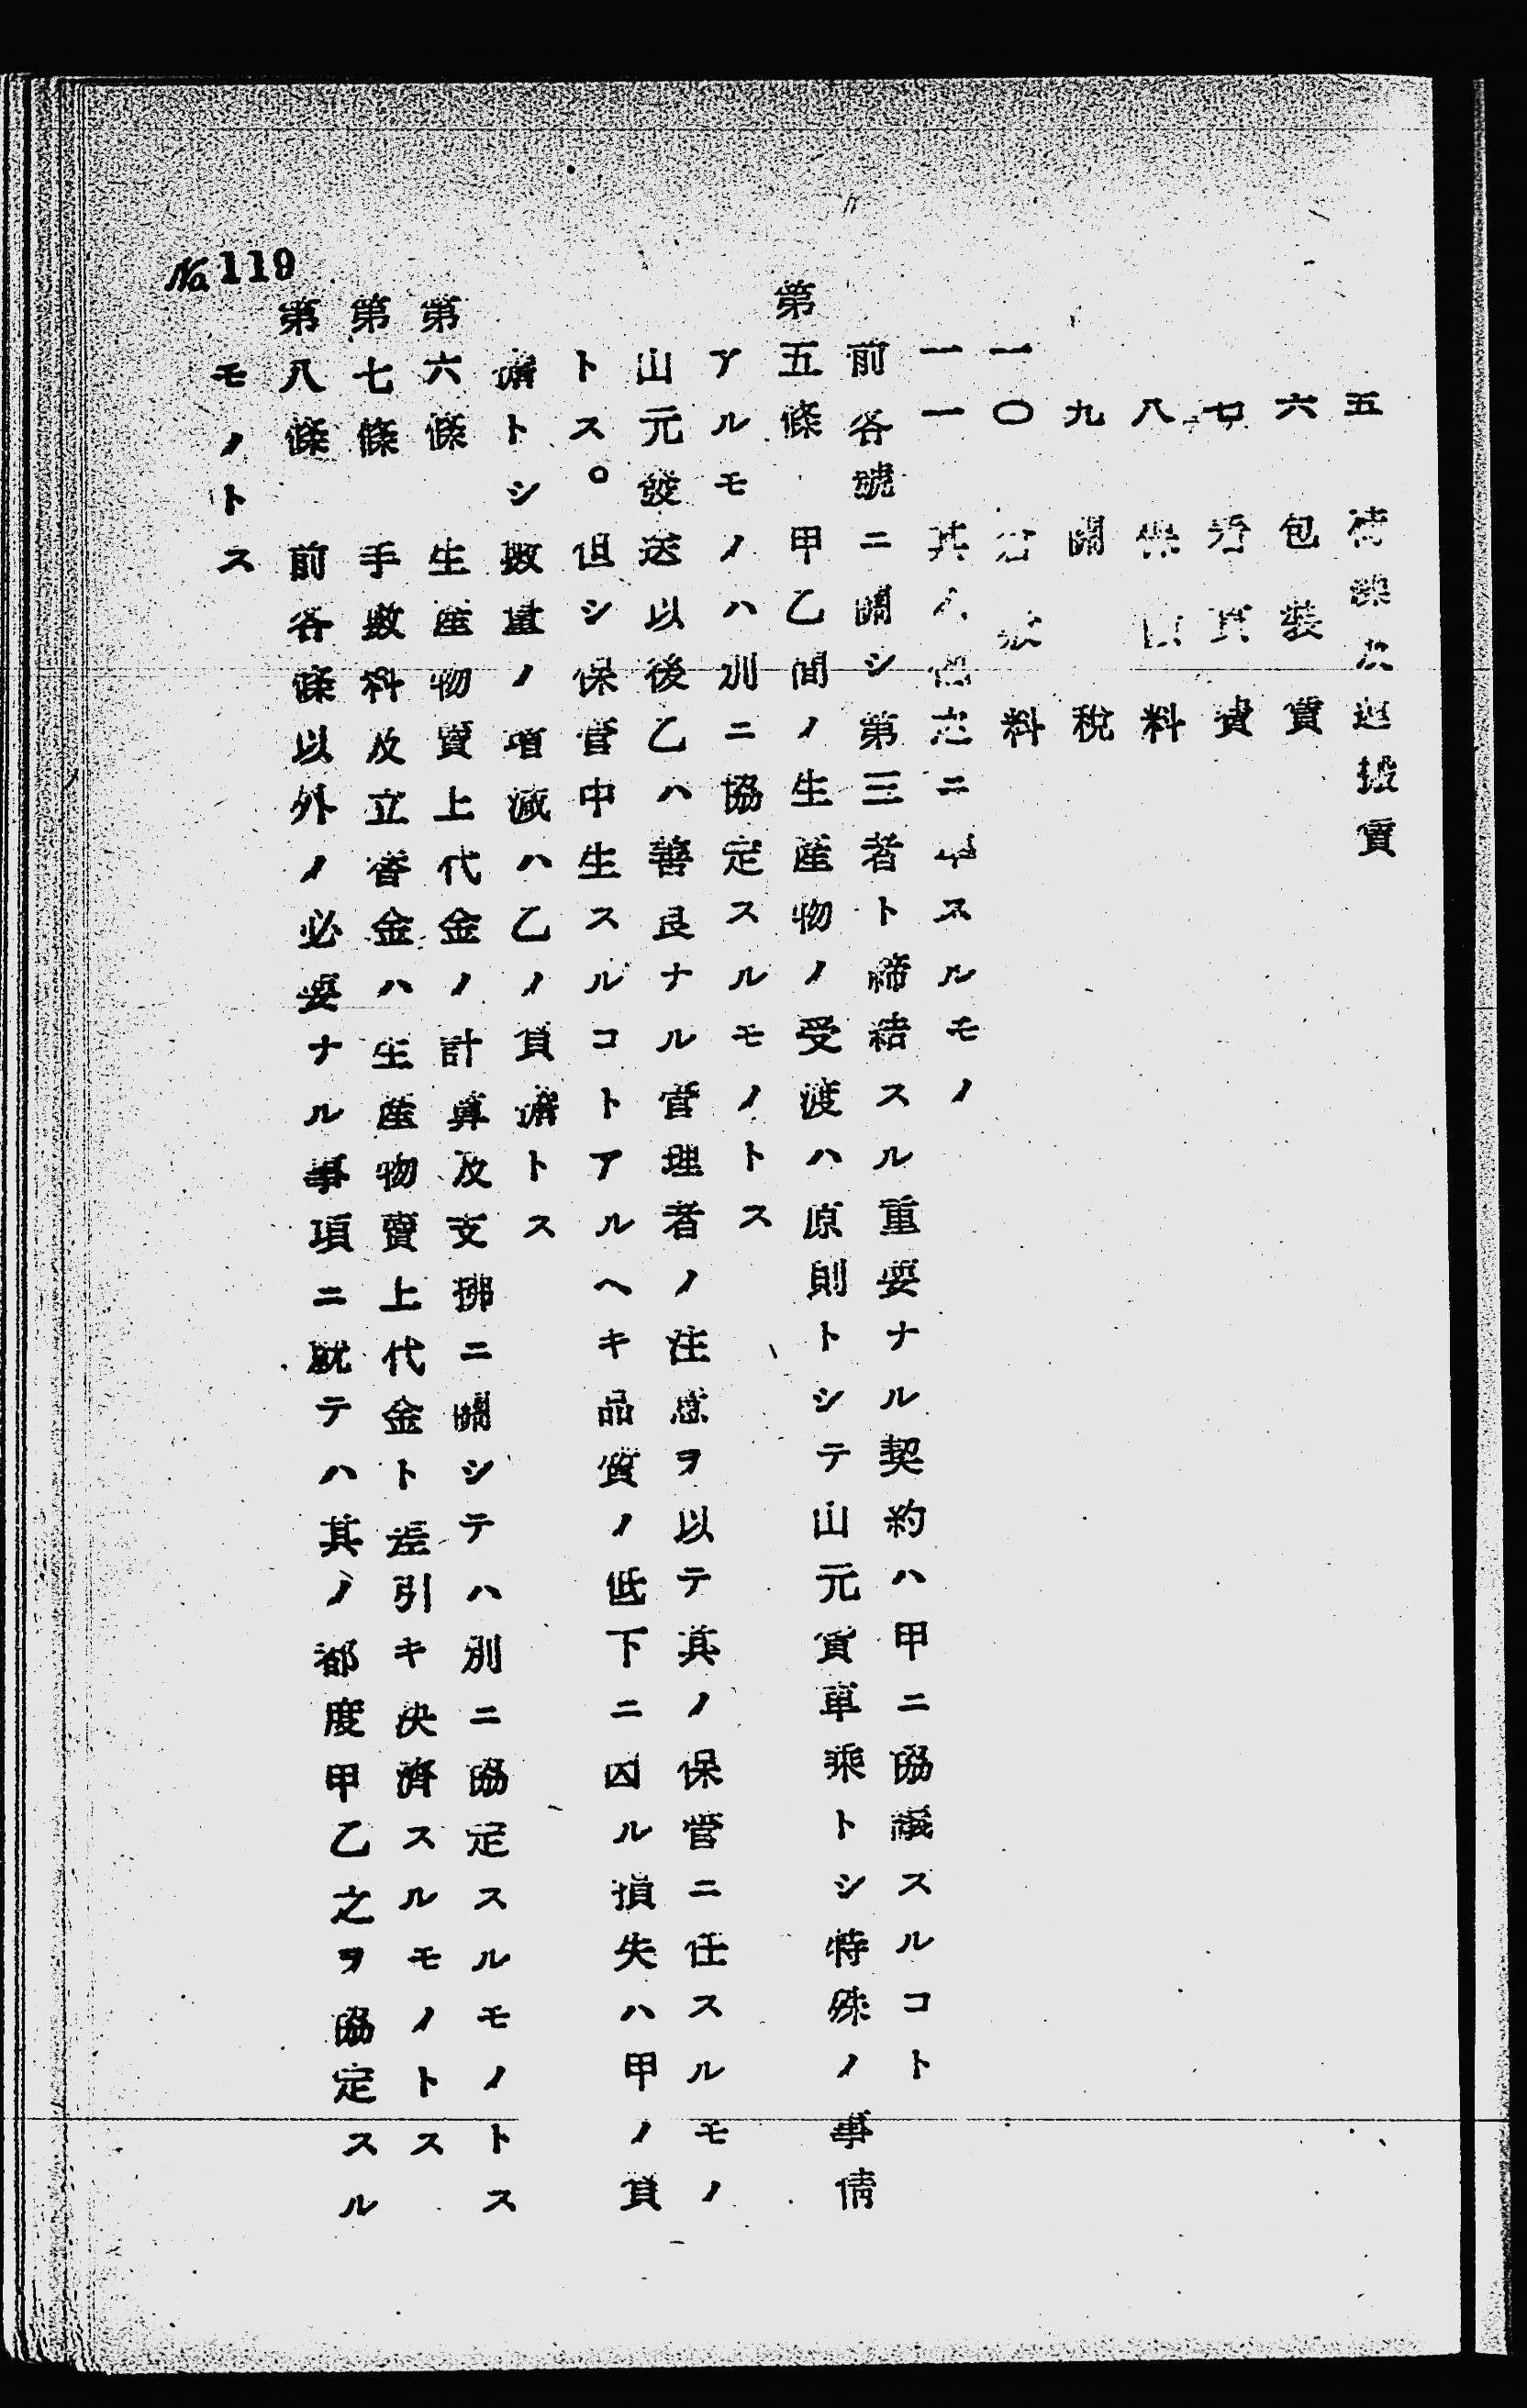 五 荷 及運搬費
六 包装費
七 費
八 保 料
九 關税
一〇 料
一一 其ノ他 ニ スルモノ
前各號ニ關シ第三者ト締結スル重要ナル契約ハ甲ニ協議スルコト
第五條 甲乙間ノ生産物ノ受渡ハ原則トシテ山元貨車乘トシ特殊ノ事情
アルモノハ別ニ協定スルモノトス
山元發送以後乙ハ善良ナル管理者ノ注意ヲ以テ其ノ保管ニ任スルモノ
トス。但シ保管中生スルコトアルヘキ品質ノ低下ニ因ル損失ハ甲ノ負
擔トシ數量ノ増減ハ乙ノ負擔トス
第六條 生産物賣上代金ノ計算及支拂ニ關シテハ別ニ協定スルモノトス
第七條 手數料及立替金ハ生産物賣上代金ト差引キ決濟スルモノトス
第八條 前各條以外ノ必要ナル事項ニ就テハ其ノ都度甲乙之ヲ協定スル
モノトス
No.119